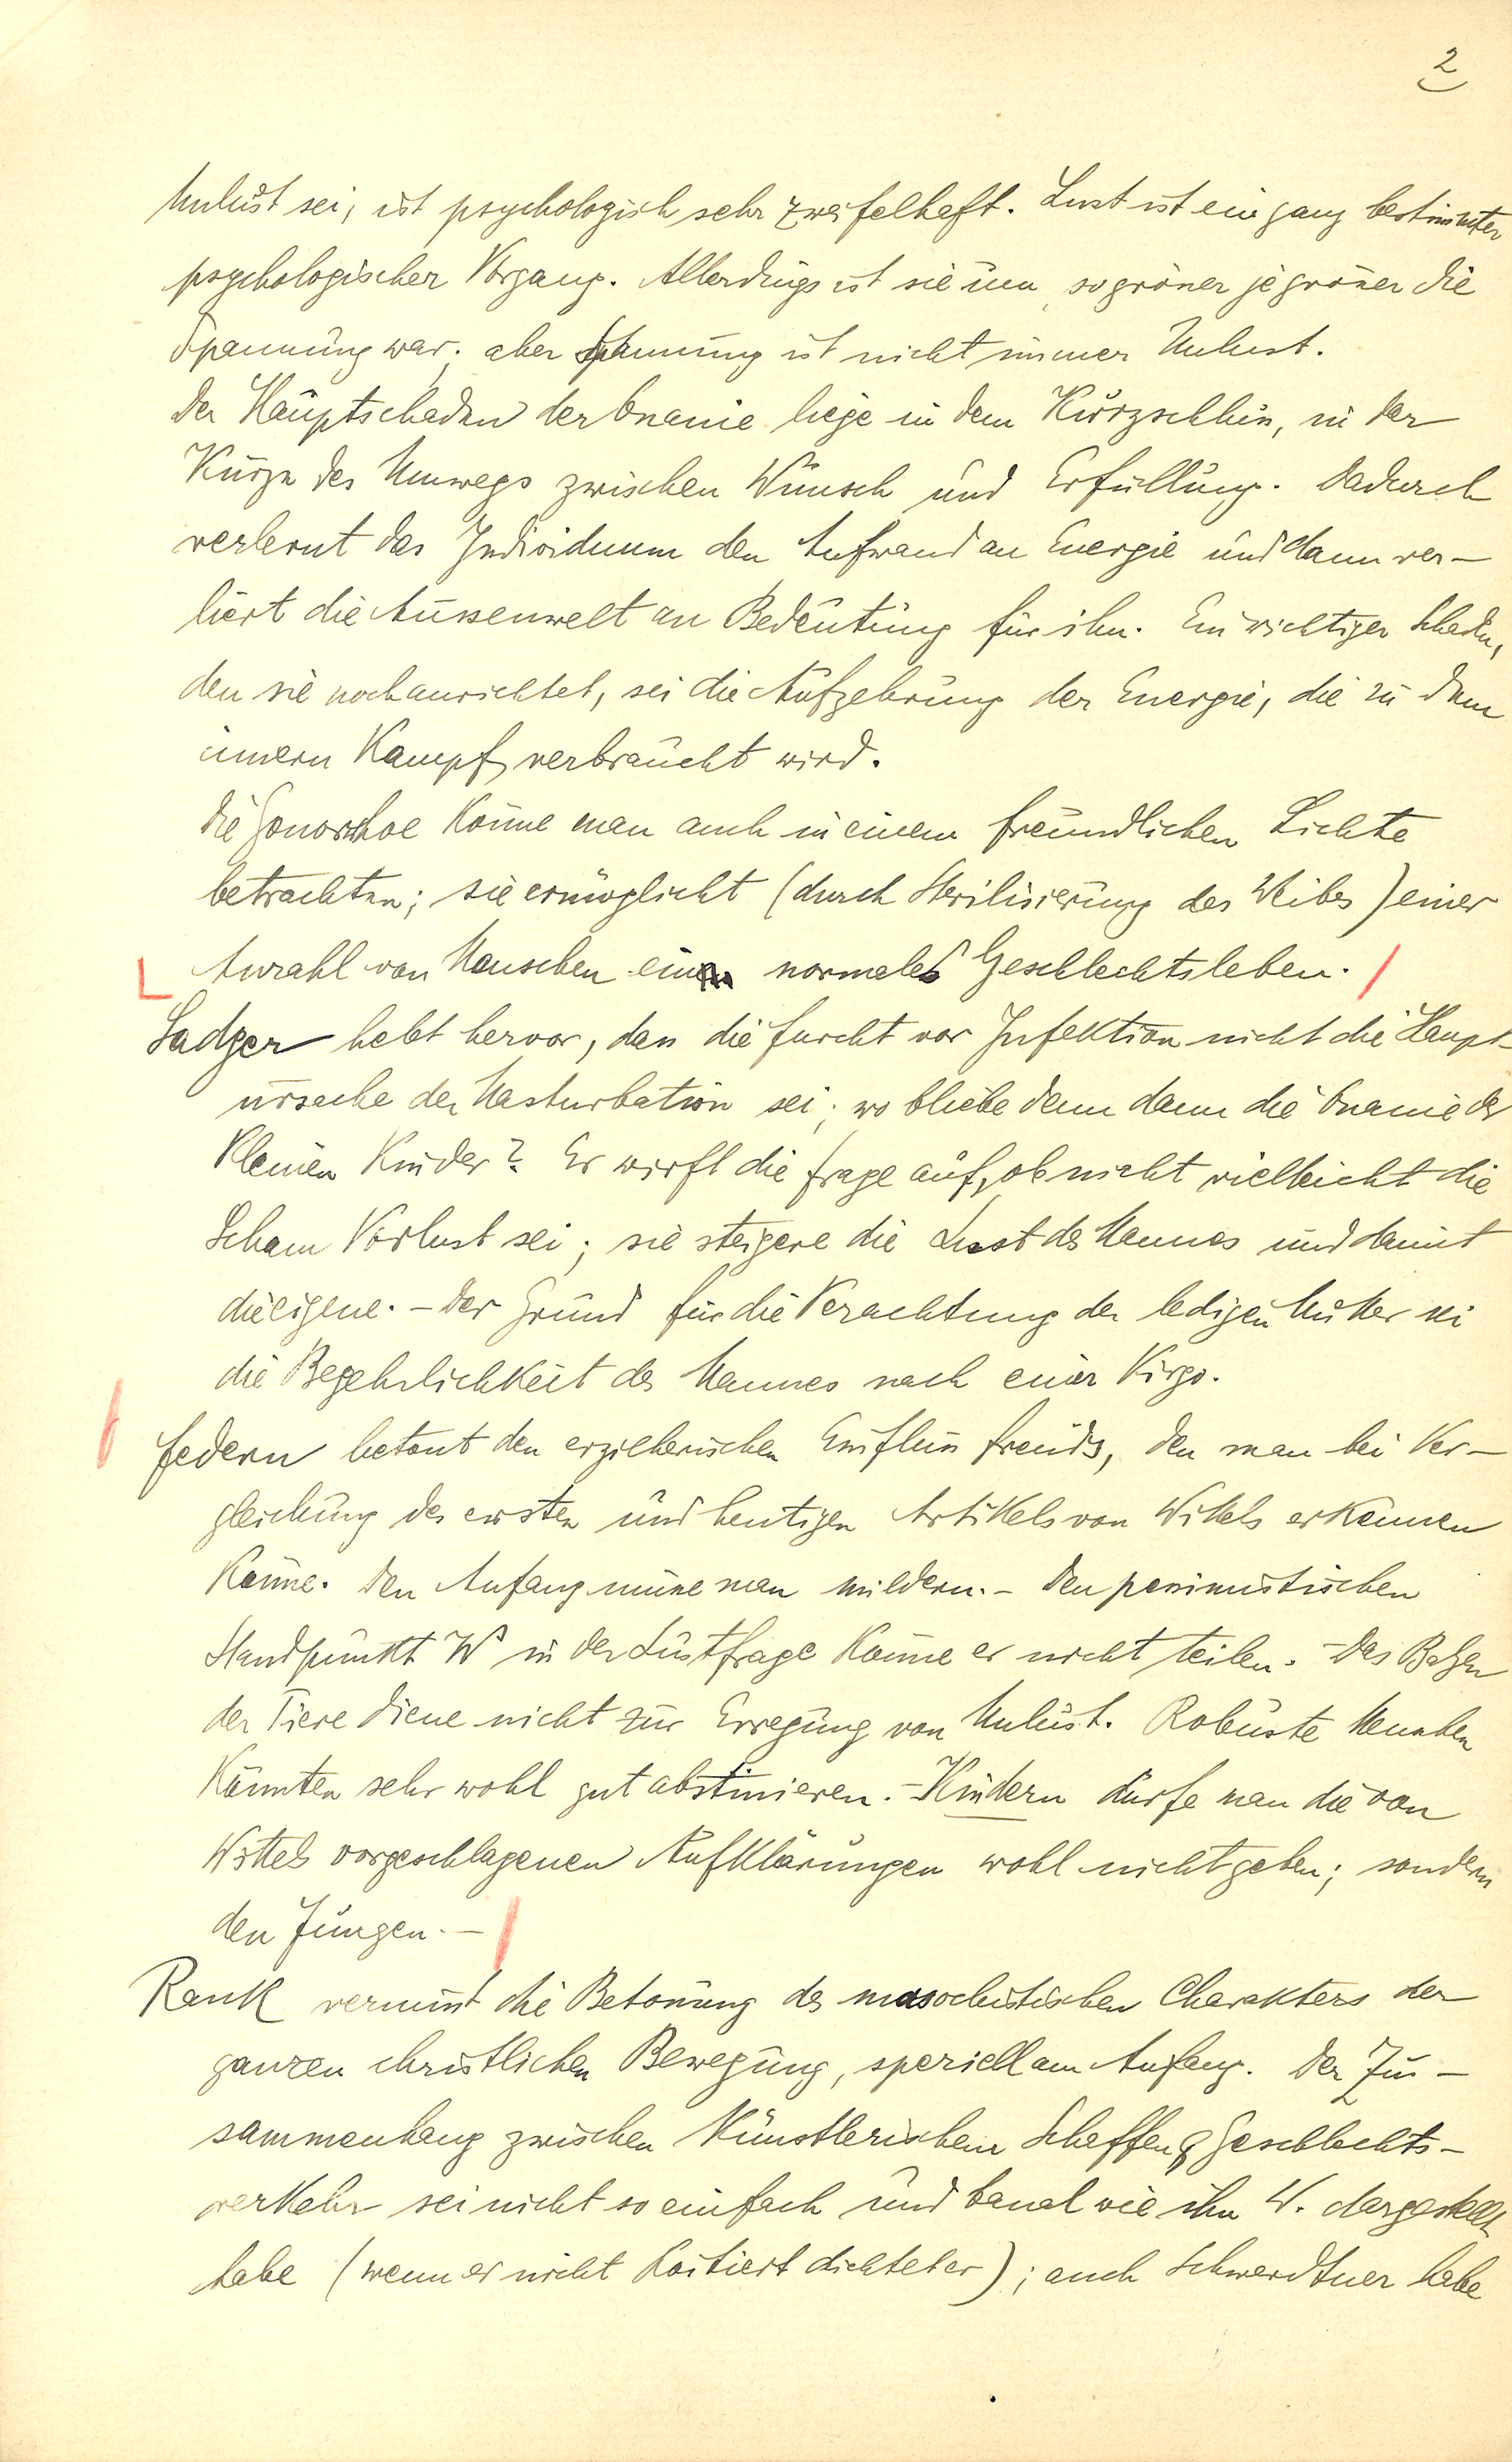 2
Unlust sei, ist psychologisch sehr zweifelhaft. Lust ist ein ganz bestimmter
psychologischer Vorgang. Allerdings ist sie um so größer je größer die
Spannung war; aber Spannung ist nicht immer Unlust.
Der Hauptschaden der Onanie liege in dem Kurzschluß, in der
Kürze des Umwegs zwischen Wunsch und Erfüllung. Dadurch
verlernt das Individuum den Aufwand an Energie und dann ver-
liert die Aussenwelt an Bedeutung für ihn. Ein wichtiger Schaden,
den sie noch anrichtet, sei die Aufzehrung der Energie, die zu dem
innern Kampf verbraucht wird.
Die Gonorrhoe könne man auch in einem freundlichen Lichte
betrachten; sie ermöglicht (durch Sterilisierung des Weibes) einer
Anzahl von Menschen ein normales Geschlechtsleben.
Sadger hebt hervor, daß die Furcht vor Infektion nicht die Haupt-
ursache der Masturbation sei; wo bliebe denn dann die Onanie der
kleinen Kinder? Er wirft die Frage auf, ob nicht vielleicht die
Scham Vorlust sei; sie steigere die Lust des Mannes und damit
die eigene. - Der Grund für die Verachtung der ledigen Mutter sei
die Begehrlichkeit des Mannes nach einer Virgo.
Federn betont den erzieherischen Einfluß Freuds, den man bei Ver-
gleichung des ersten und heutigen Artikels von Wittels erkennen
könne. Den Anfang müße man mildern. - Den peßimistischen
Standpunkt W's in der Lustfrage könne er nicht teilen. - Das Balzen
der Tiere diene nicht zur Erregung von Unlust. Robuste Menschen
könnten sehr wohl gut abstinieren. - Kindern dürfe man die von
Wittels vorgeschlagenen Aufklärungen wohl nicht geben; sondern
den Jungen. -
Rank vermißt die Betonung des masochistischen Charakters der
ganzen christlichen Bewegung, speziell am Anfang. Der Zu-
sammenhang zwischen künstlerischem Schaffen & Geschlechts-
verkehr sei nicht so einfach und banal wie ihn W. dargestellt
habe (wenn er nicht koitiert dichtet er); auch Schwerdtner habe